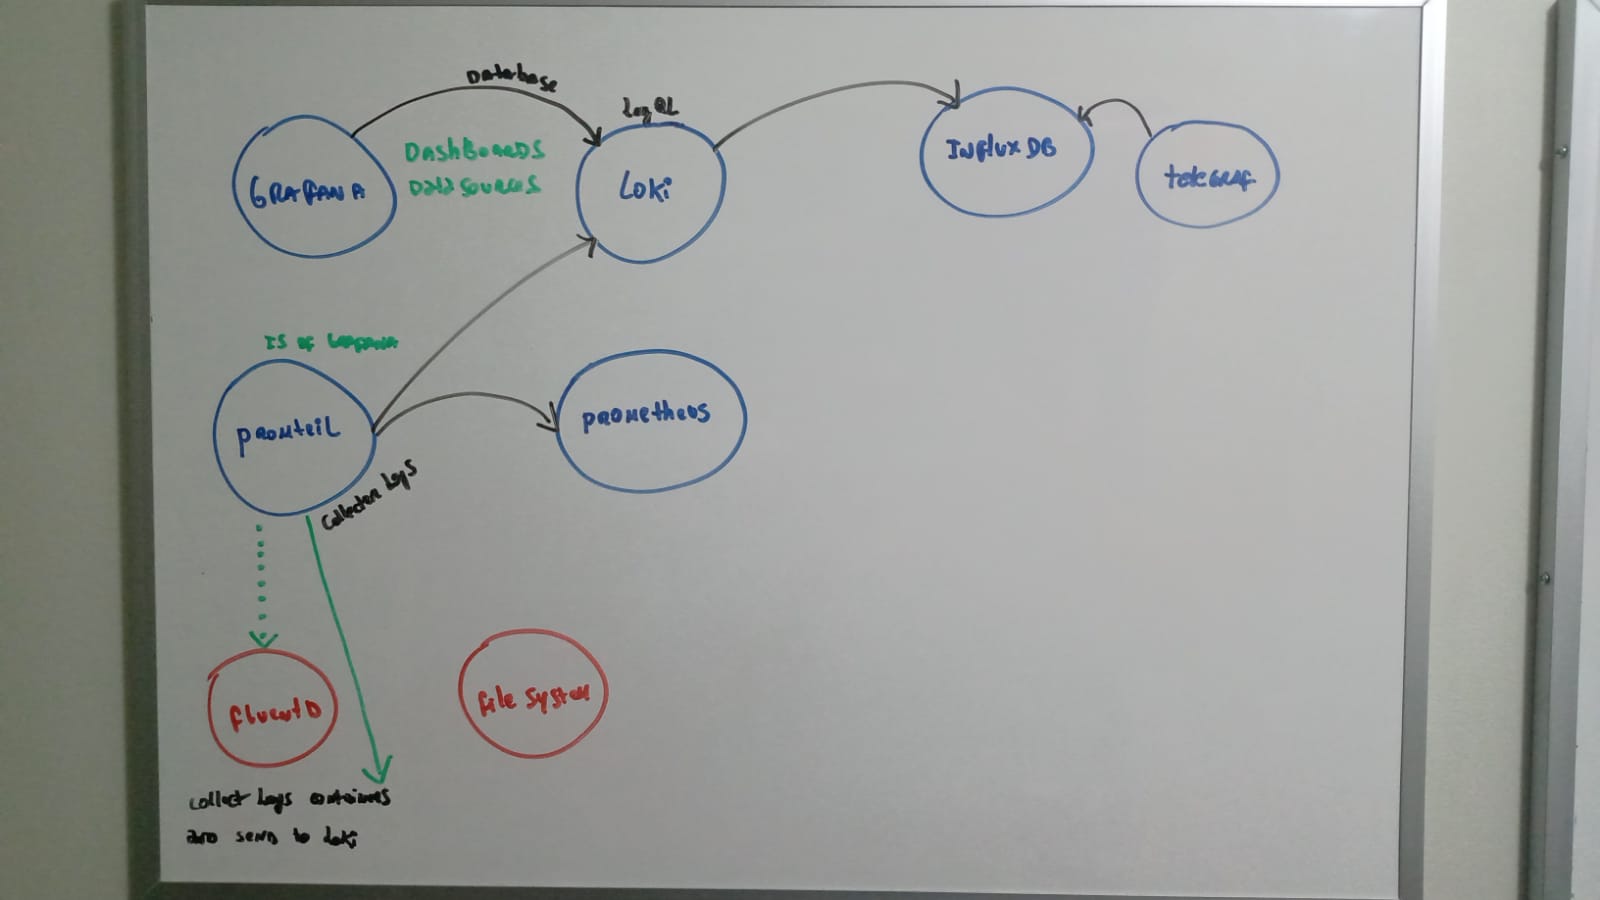 Database
LogQL
DASHBOARDS
DATA SOURCES
GRAFANA
Loki
INFLUX DB
teleGRAF
IS OF GRAFANA
PROMTEIL
PROMETHEOS
Collecter Logs
FluentD
File System
collect Logs containers
AND SEND to Loki